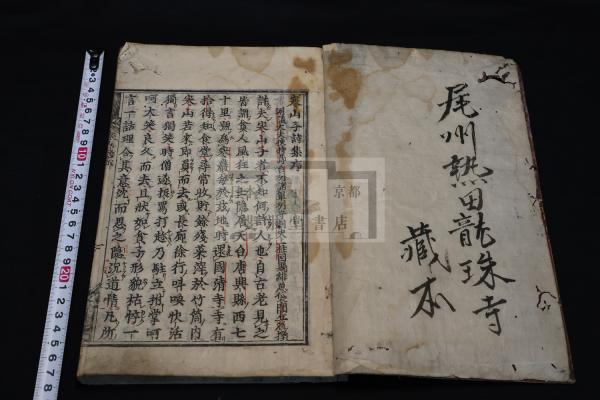 尾州熱田龍珠寺
藏本
寒山子詩集序
詳夫寒山子者不知何許人也自古老見之
皆謂貧人風狂之士隱居天台唐興縣西七
十里號為寒巖每於茲地時還國清寺寺有
拾得知食堂尋常收貯餘殘菜滓於竹筒內
寒山若來即負而去或長廊徐行叫喚快活
獨言獨笑時僧遂捉罵打趁乃駐立拊掌呵
呵大笑良久而去且狀如貧子形貌枯悴一
言一話理合其意沈而思之隱況道情凡所
京都
書店